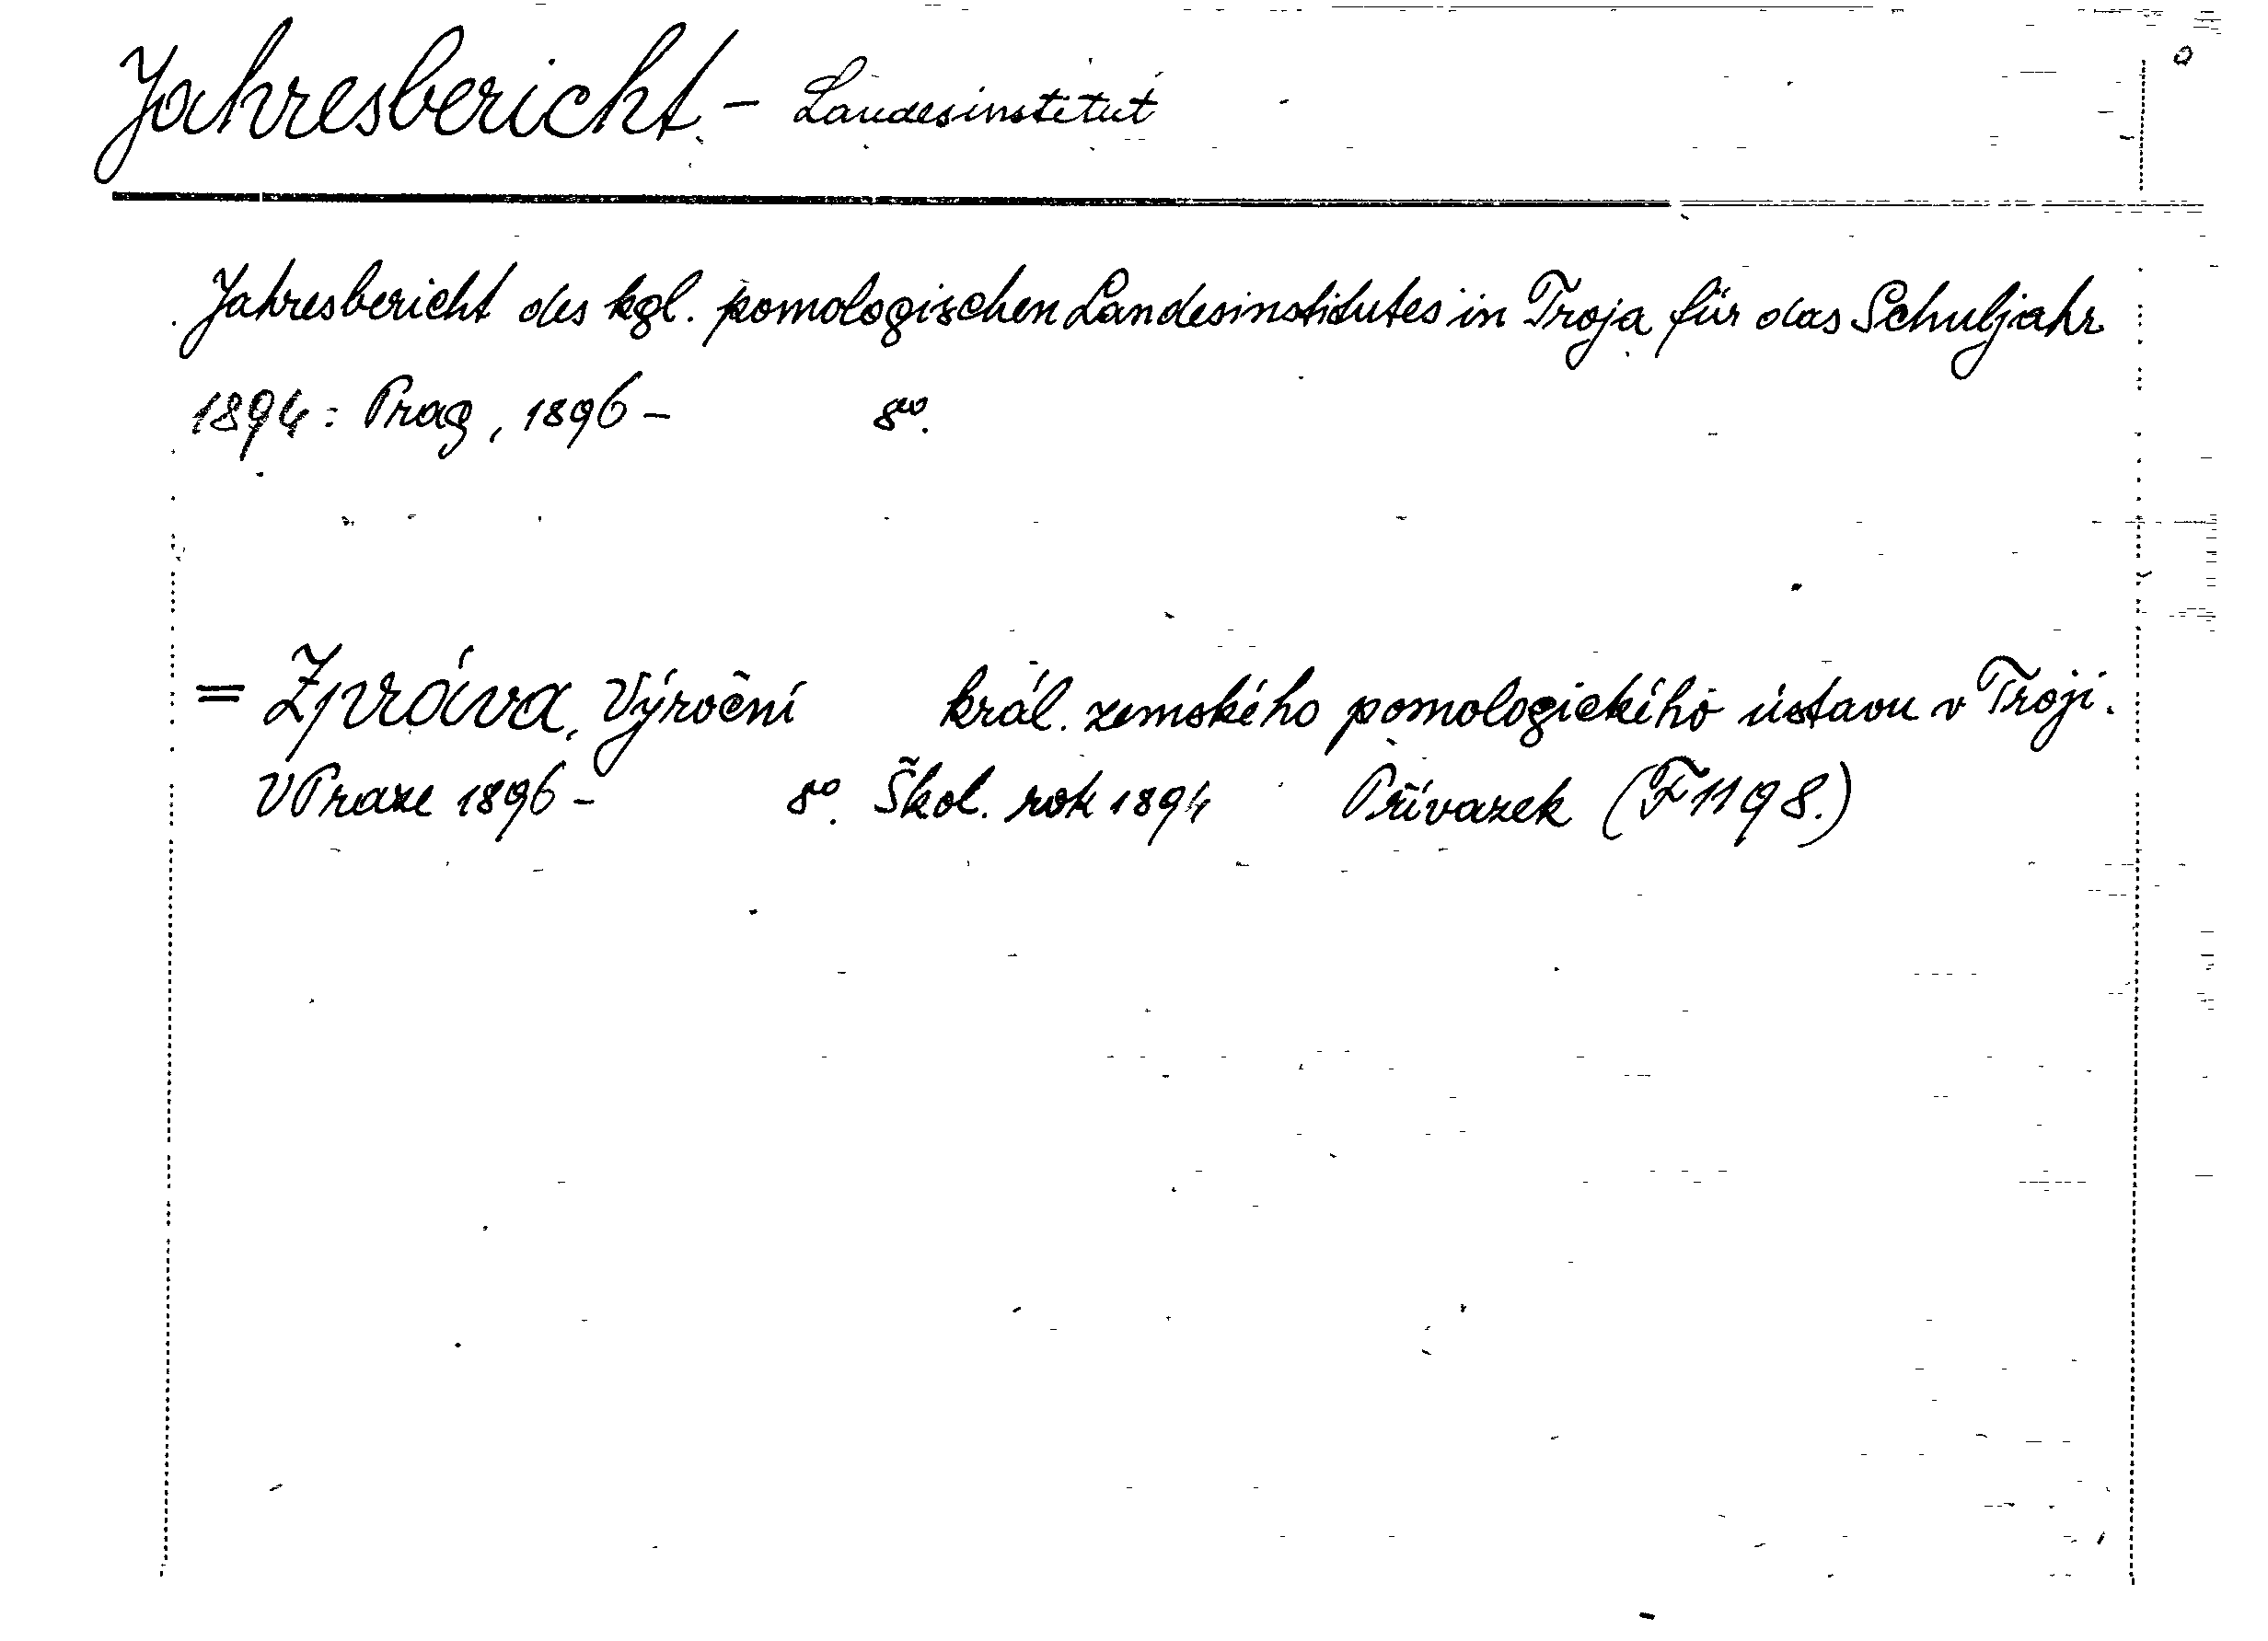 Jahresbericht - Landesinstitut
Jahresbericht des kgl. pomologischen Landesinstitutes in Troja für das Schuljahr
1894: Prag, 1896 - 8vo.
= Zpráva, Výroční král. zemského pomologického ústavu v Troji.
V Praze 1896 - 8o. Škol. rok 1894 Přívazek (F 1198.)